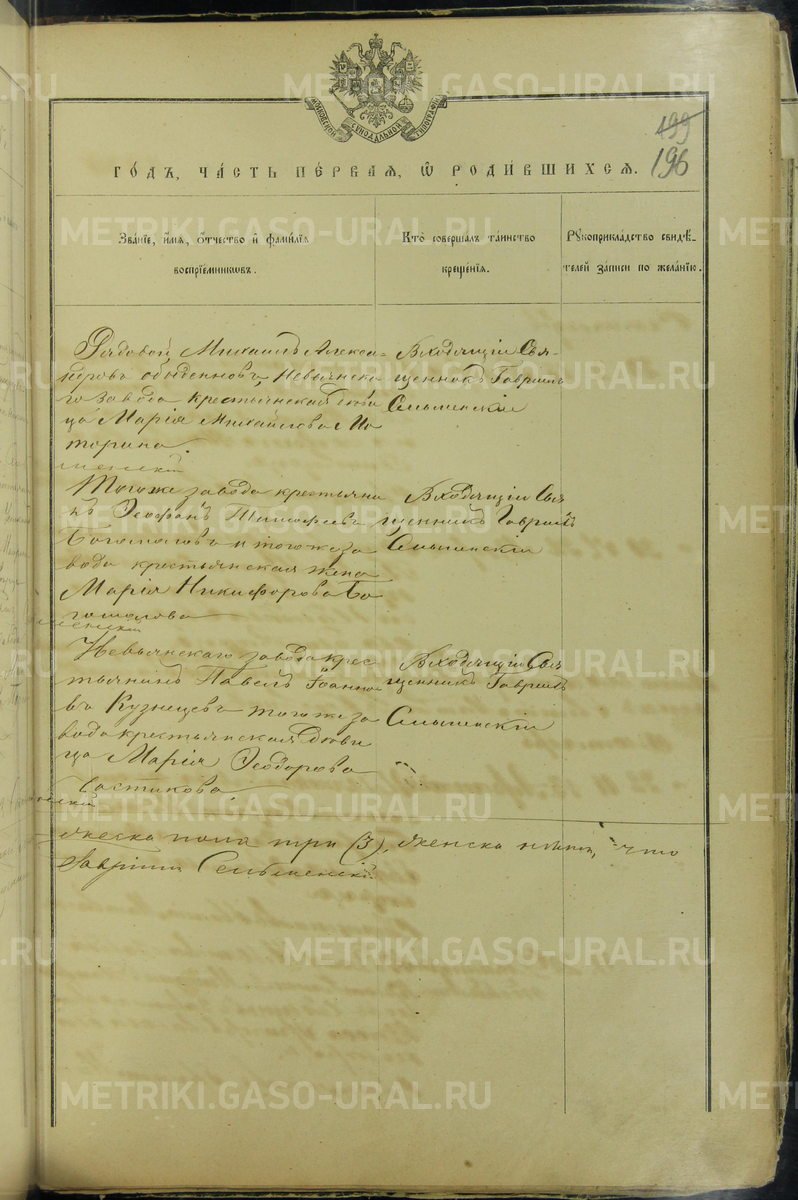 МОСКОВСКОЙ СѴНОДАЛЬНОЙ ТИПОГРАФІИ
199
196
ГО́ДЪ, ЧА́СТЬ ПЕ́РВАЯ, Ѡ҆ РОДИ́ВШИХСЯ.
Зва́нїе, и҆́мя, ѻ҆́тчество и҆ фами́лїя
воспрїе́мникѡвъ.
Кто̀ соверша́лъ та́инство
креще́нїя.
Рꙋкоприкла́дство свидѣ́-
телей за́писи по жела́нїю.
Рядовой Михаилъ Алекса-
ндровъ Невьянска-
го завода крестьянская дѣви
ца Марія Михайлова Мо
торина
Входящій Свя-
щенникъ Гавріилъ
Смышенскій
Тогоже завода крестьяни
нъ Ѳеофанъ Тимофеевъ
Богомоловъ и тогоже за
вода крестьянская жена
Марія Никифорова Бо
гомолова
Входящій Свя
щенникъ Гавріилъ
Невьянскаго завода крес
тьянинъ Павелъ Іоанно
въ Кузнецовъ тогоже за
вода крестьянская дѣви
ца Марія Ѳеодорова
Входящій Свя
щенникъ Гавріилъ
ческа пола три (3), женска что
Гавріилъ
METRIKI.GASO-URAL.RU